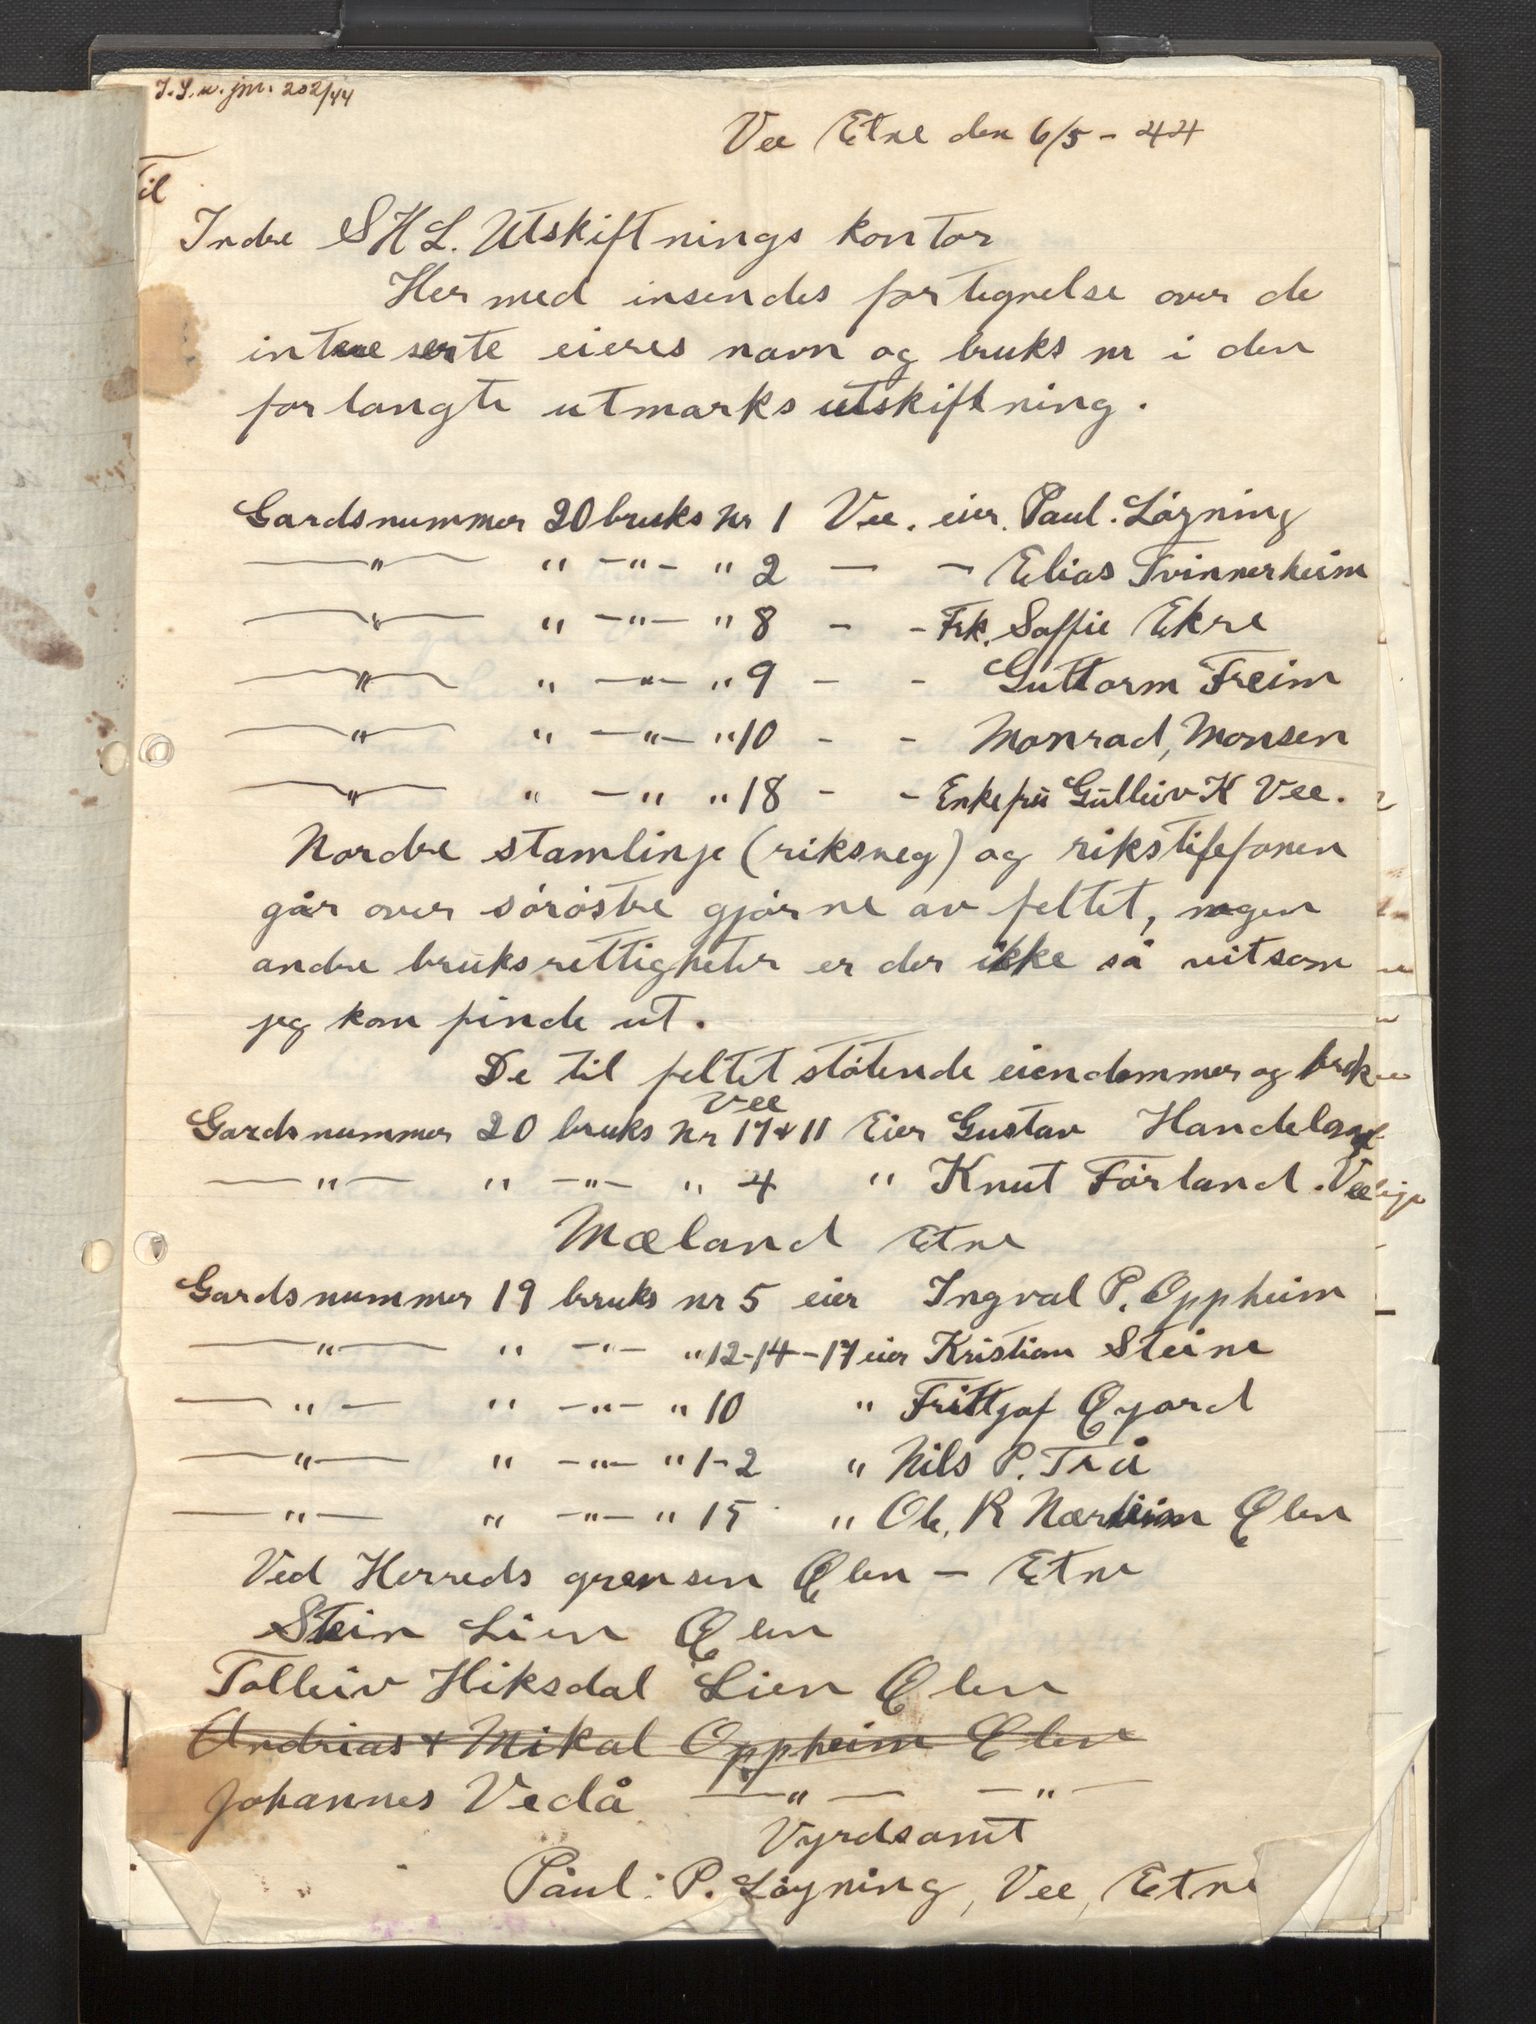 J.S.u. jnr. 202/44
Vee Etne den 6/5 - 44
Til
Indre S H L. Utskiftnings kontor
Her med insendes fortegnelse over de
intereserte eieres navn og bruks nr i den
forlangte utmarks utskiftning.
Gardsnummer 20 bruks Nr 1 Vee. eier. Paul. Löyning
—"— " —"— " 2 — — Elias Tvinnerheim
—"— " —"— " 8 - - Frk. Soffie Ekre
—"— " —"— " 9 - - Guttorm Freim
—"— " —"— " 10 - - Monrad, Monsen
—"— " —" " 18 - - Enkefrü Gülleiv K Vee.
Nordre stamlinje (riksneg) og rikstelefonen
går over söröstre gjörne av feltet, nogen
andre brüksrettigheter er der ikke så vitsom
jeg kan finde ut.
De til feltet stötende eiendommer og bruk
Vee
Gardsnummer 20 bruks Nr 17 + 11 Eier Gustav Handeland
—"— " —"— " 4 " Knut Förland. Vee
Mæland Etne
Gardsnummer 19 bruks nr 5 eier Ingval P. Oppheim
—"— " —"— " 12-14-17 eier Kristian Steine
—"— " —"— " 10 " Frittjof Øyord
—"— " —"— " 1-2 " Nils P. Trå
—"— " —"— " 15 " Ole. R Nærheim Ølen
Ved Herreds grensen Ølen — Etne
Stein Lien Ølen
Tolleiv Hiksdal Lien Ølen
Andrias + Mikal Oppheim Ølen
Johannes Vedå —"— —"—
Vyrdsamt
Påul. P. Löyning, Vee, Etne